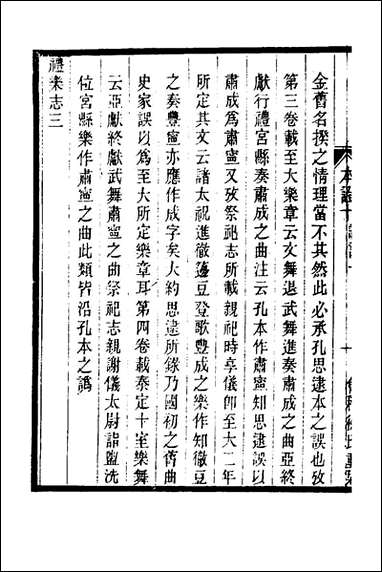 金舊名撰之情理當不其然此必承孔思逮本之誤也攷
第三卷載至大樂章云文舞退武舞進奏肅成之曲亞終
獻行禮宮縣奏肅成之曲注云孔本作肅寧知思逮誤以
肅成爲肅寧又攷祭祀志所載親祀時享儀卽至大二年
所定其文云諸太祝進徹籩豆登歌豐成之樂作知徹豆
之奏豐寧亦應作成字矣大約思逮所錄乃國初之舊曲
史家誤以爲至大所定樂章耳第四卷載泰定十室樂舞
云亞獻終獻武舞肅寧之曲祭祀志親謝儀太尉詣盥洗
位宮縣樂作肅寧之曲此類皆沿孔本之譌
禮樂志三